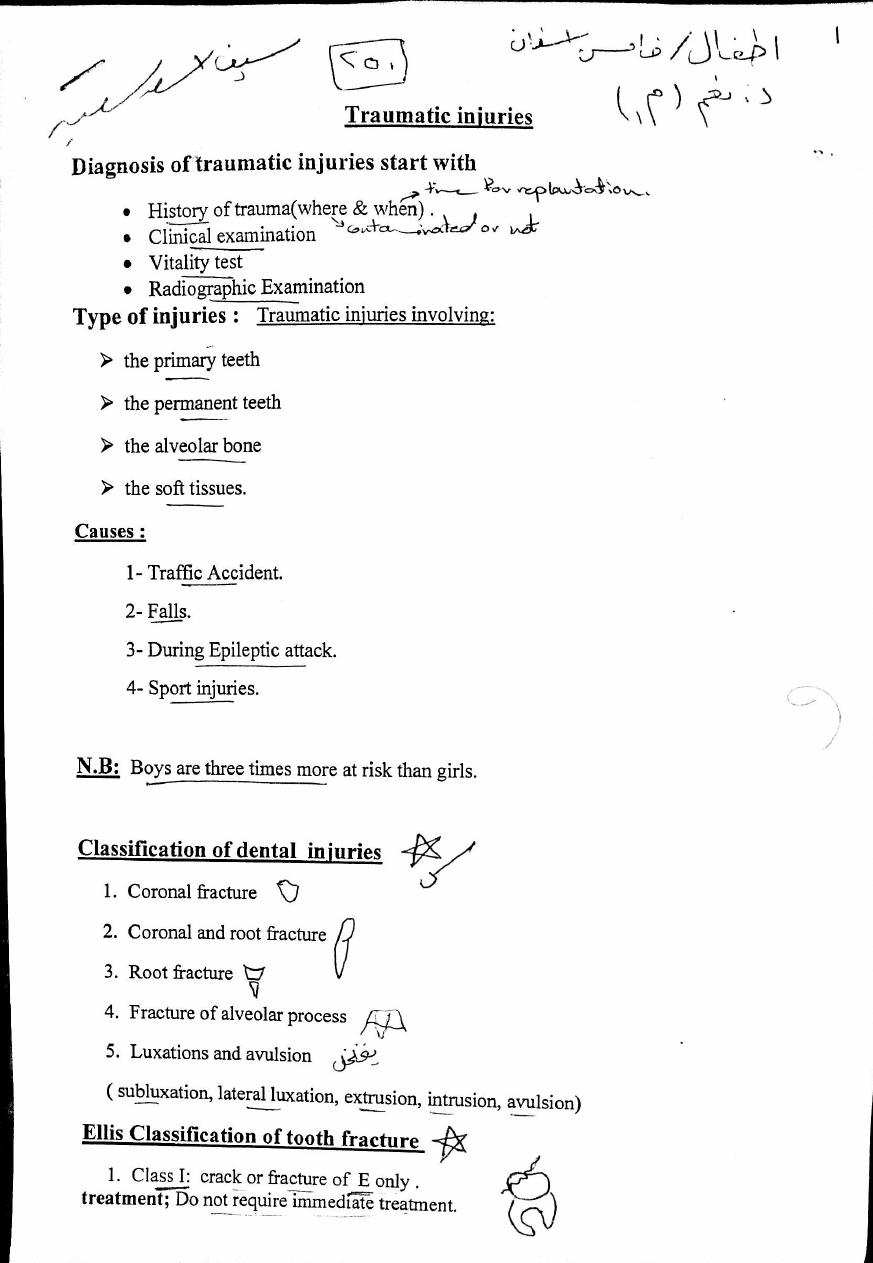 ١
اطفال / خامس اسنان
٢٥٠
د. نغم (م١)
Traumatic injuries
Diagnosis of traumatic injuries start with
time for replantation.
• History of trauma(where & when) .
contaminated or not
• Clinical examination
• Vitality test
• Radiographic Examination
Type of injuries : Traumatic injuries involving:
➤ the primary teeth
➤ the permanent teeth
➤ the alveolar bone
➤ the soft tissues.
Causes :
1- Traffic Accident.
2- Falls.
3- During Epileptic attack.
4- Sport injuries.
N.B: Boys are three times more at risk than girls.
Classification of dental injuries
1. Coronal fracture
2. Coronal and root fracture
3. Root fracture
4. Fracture of alveolar process
5. Luxations and avulsion
( subluxation, lateral luxation, extrusion, intrusion, avulsion)
Ellis Classification of tooth fracture
1. Class I: crack or fracture of E only .
treatment; Do not require immediate treatment.